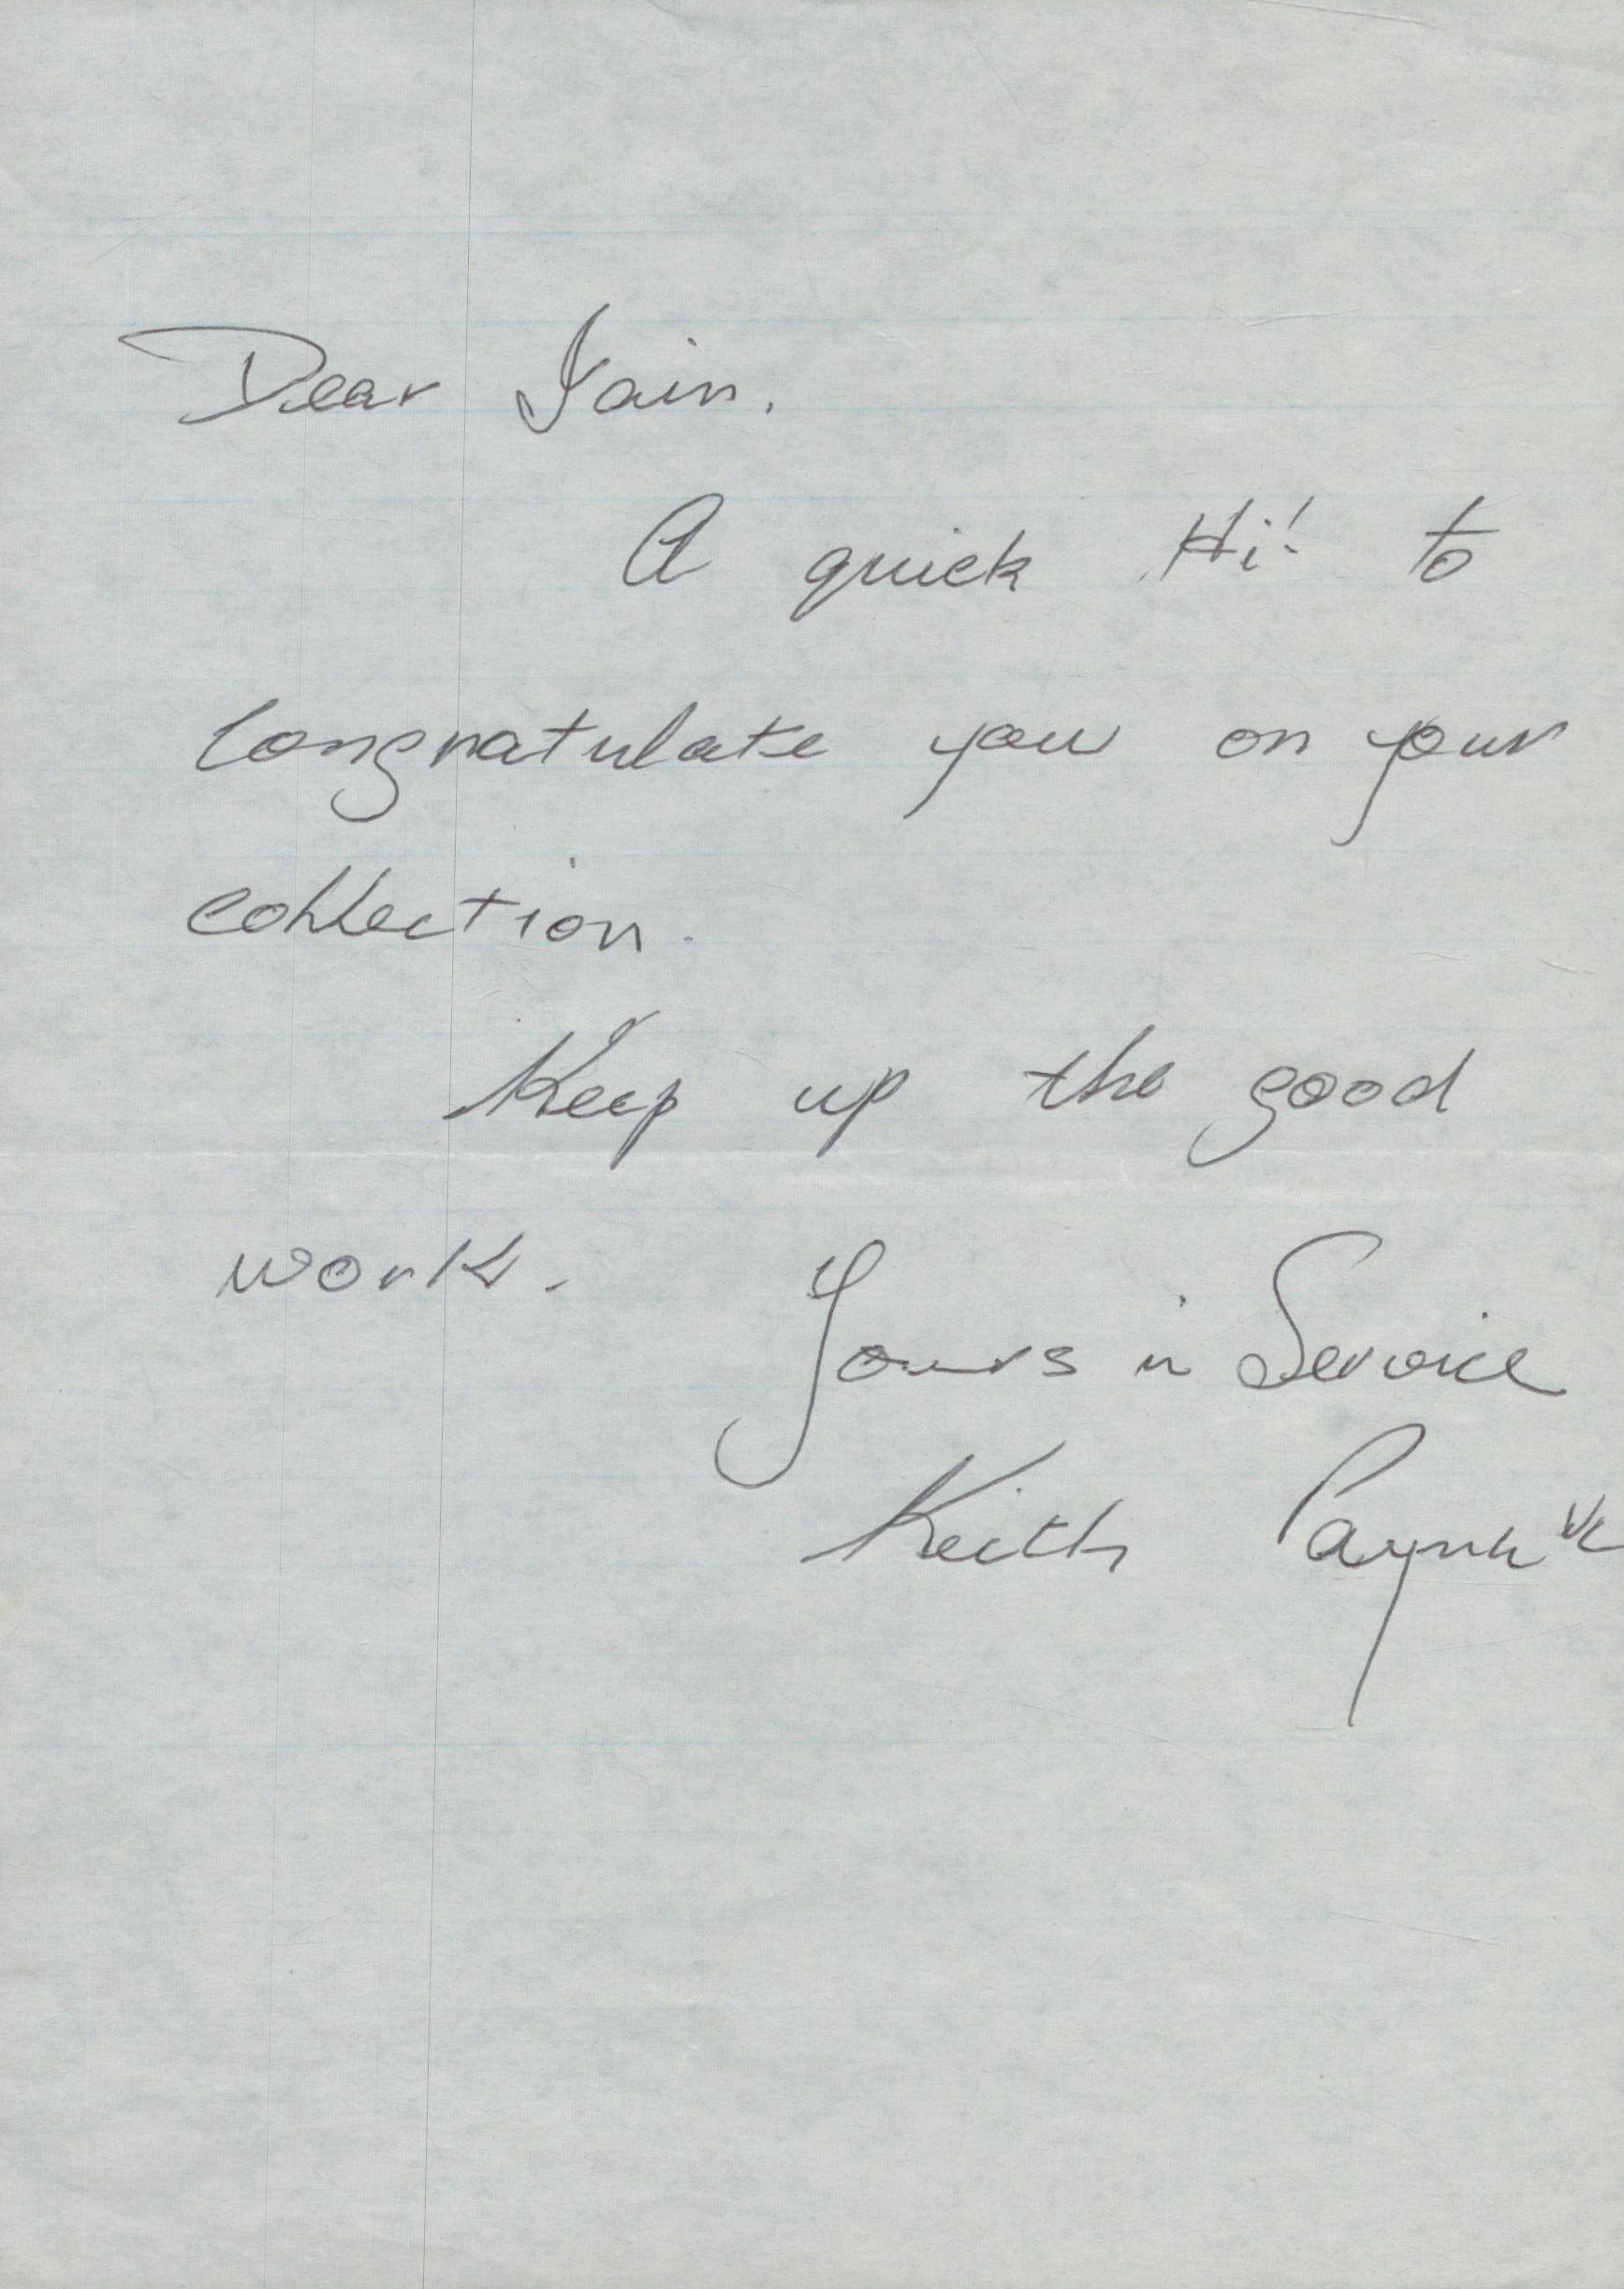 Dear Iain.
A quick Hi! to
Congratulate you on your
collection.
Keep up the good
work.
Yours in Service
Keith Payne VC